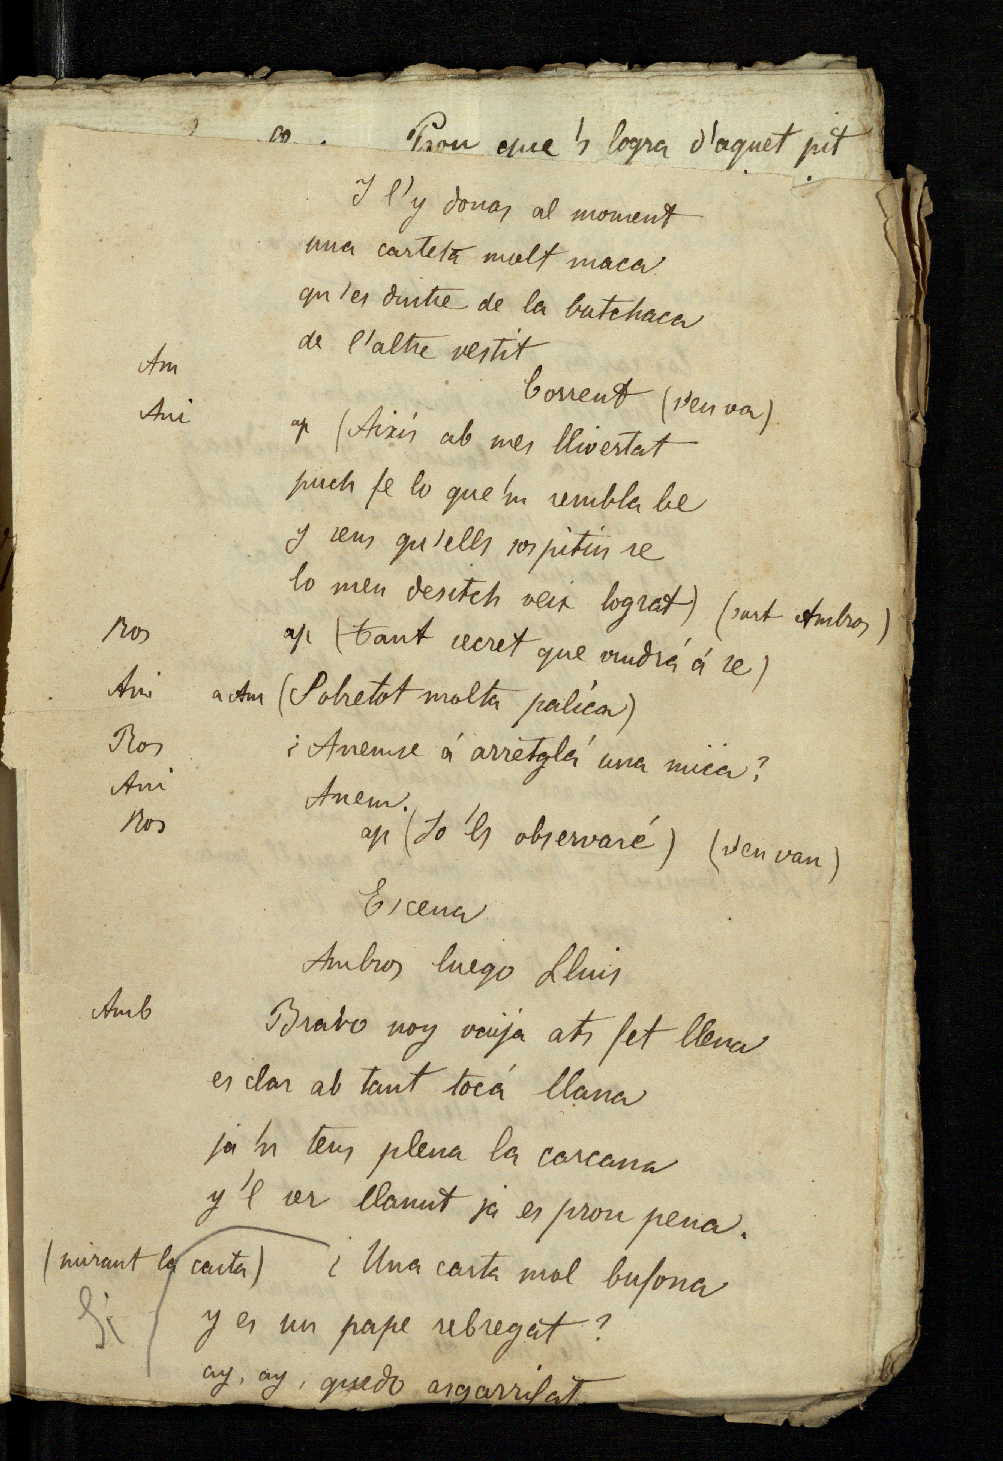 Prou que 's logra d'aquet pit
Y l'y donas al moment
una carteta molt maca
qu'es dintre de la butchaca
de l'altre vestit
Am Corrent (s'en va)
Ani ap (Aixís ab mes llivertat
puch fe lo que'm sembla be
y sens qu'ells sospitin re
lo meu desitch veix lograt) (surt Ambros)
Ros ap (Tant secret que vindrá á se)
Ani a Am (Sobretot molta palica)
Ros ¿Anemse á arretglá una mica?
Ani Anem.
Ros ap (Jo 'ls observaré) (s'en van)
Escena
Ambros luego Lluis
Amb Bravo noy vaija ats fet llena
es clar ab tant tocá llana
ja 'n tens plena la carcana
y 'l ser llanut ja es prou pena.
(mirant la carta) ¿Una carta mol bufona
y es un pape rebregat?
Si
ay, ay, quedo asgarrifat